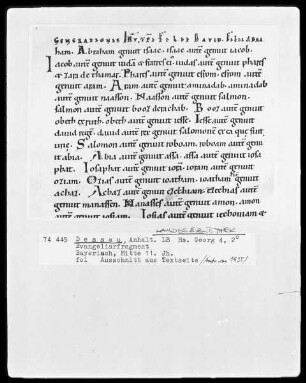 GENERATIONIS IHV XPI FILII DAVID. FILII ABRA
ham. Abraham genuit isaac. isaac aute genuit iacob.
Iacob aute genuit iuda & fratres ei. iudas aute genuit phares
& zara de thamar. Phares aute genuit esrom. esrom aute
genuit aram. Aram aute genuit aminadab. aminadab
aute genuit naasson. Naasson aute genuit salmon.
salmon aute genuit booz de rachab. Booz aute genuit
obeth ex ruth. obeth aute genuit iesse. Iesse aute genuit
david rege. david aute rex genuit salomone ex ea que fuit
urie. Salomon aute genuit roboam. roboam aute genu
it abia. Abia aute genuit assa. assa aute genuit iosa
phat. Iosaphat aute genuit iora. ioram aute genuit
oziam. Ozias aute genuit ioatham. ioatham aute genuit
achaz. Achaz aute genuit Ezechiam. Ezechias aute
genuit manassen. Manasses aute genuit amon. amon
aute genuit iosiam. Iosias aute genuit iechoniam &
LANDESBIBLIOTHEK
74 445 Dessau, Anhalt. LB Hs. Georg 4, 2°
Evangeliarfragment
Bayerisch, Mitte 11. Jh.
fol Ausschnitt aus Textseite